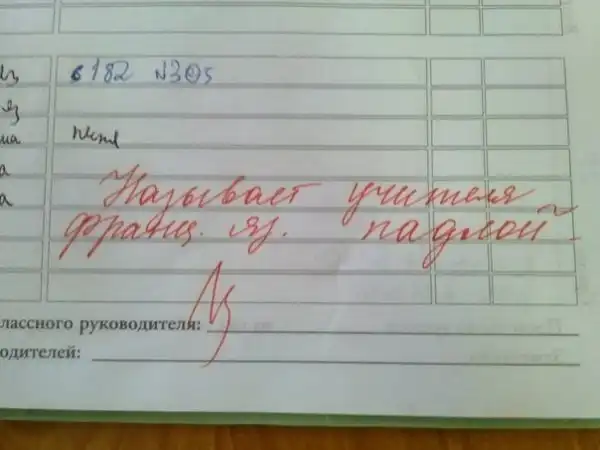 с 182 №305
Называет учителя
франц. яз. падлой
лассного руководителя:
одителей: